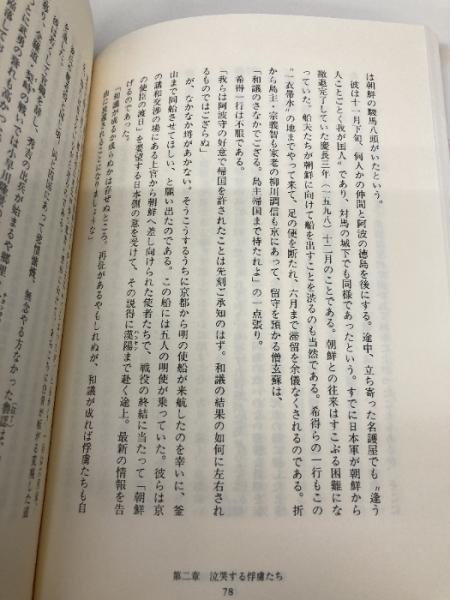 は朝鮮の駿馬八頭がいたという。
彼は十一月下旬、何人かの仲間と阿波の徳島を後にする。途中、立ち寄った名護屋でも〝逢う
人ことごとく我が国人〟であり、対馬の城下でも同様であったという。すでに日本軍が朝鮮から
撤退完了していた慶長三年(一五九八)十二月のことである。朝鮮との往来はすこぶる困難にな
っていた。船夫たちが朝鮮に向けて船を出すことを渋るのも当然である。希得らの一行もこの
〝一衣帯水〟の地までやって来て、足の便を断たれ、六月まで滞留を余儀なくされるのである。折
から島主・宗義智も家老の柳川調信も京にあって、留守を預かる僧玄蘇は、
「和議のさなかでござる。島主帰国まで待たれよ」の一点張り。
希得一行は不服である。
「我らは阿波守の好意で帰国を許されたことは先刻ご承知のはず。和議の結果の如何に左右され
るものではござらぬ」
が、なかなか埒があかない。そうこうするうちに京都から明の使船が来航したのを幸いに、釜
山まで同船させてほしい、と願い出たのである。この船には五人の明使が乗っていた。彼らは京
の講和交渉の場にある上官から朝鮮へ差し向けられた使者たちで、戦役の終結に当たって「朝鮮
の使臣の渡日」を要望する日本側の意を受けて、その説得に漢陽まで赴く途上。最新の情報を告
げるのであった。
「和議が成るか成らぬかは存ぜぬところ。再征があるやもしれぬが、和議が成れば俘虜たちも自
第二章 泣哭する俘虜たち
78